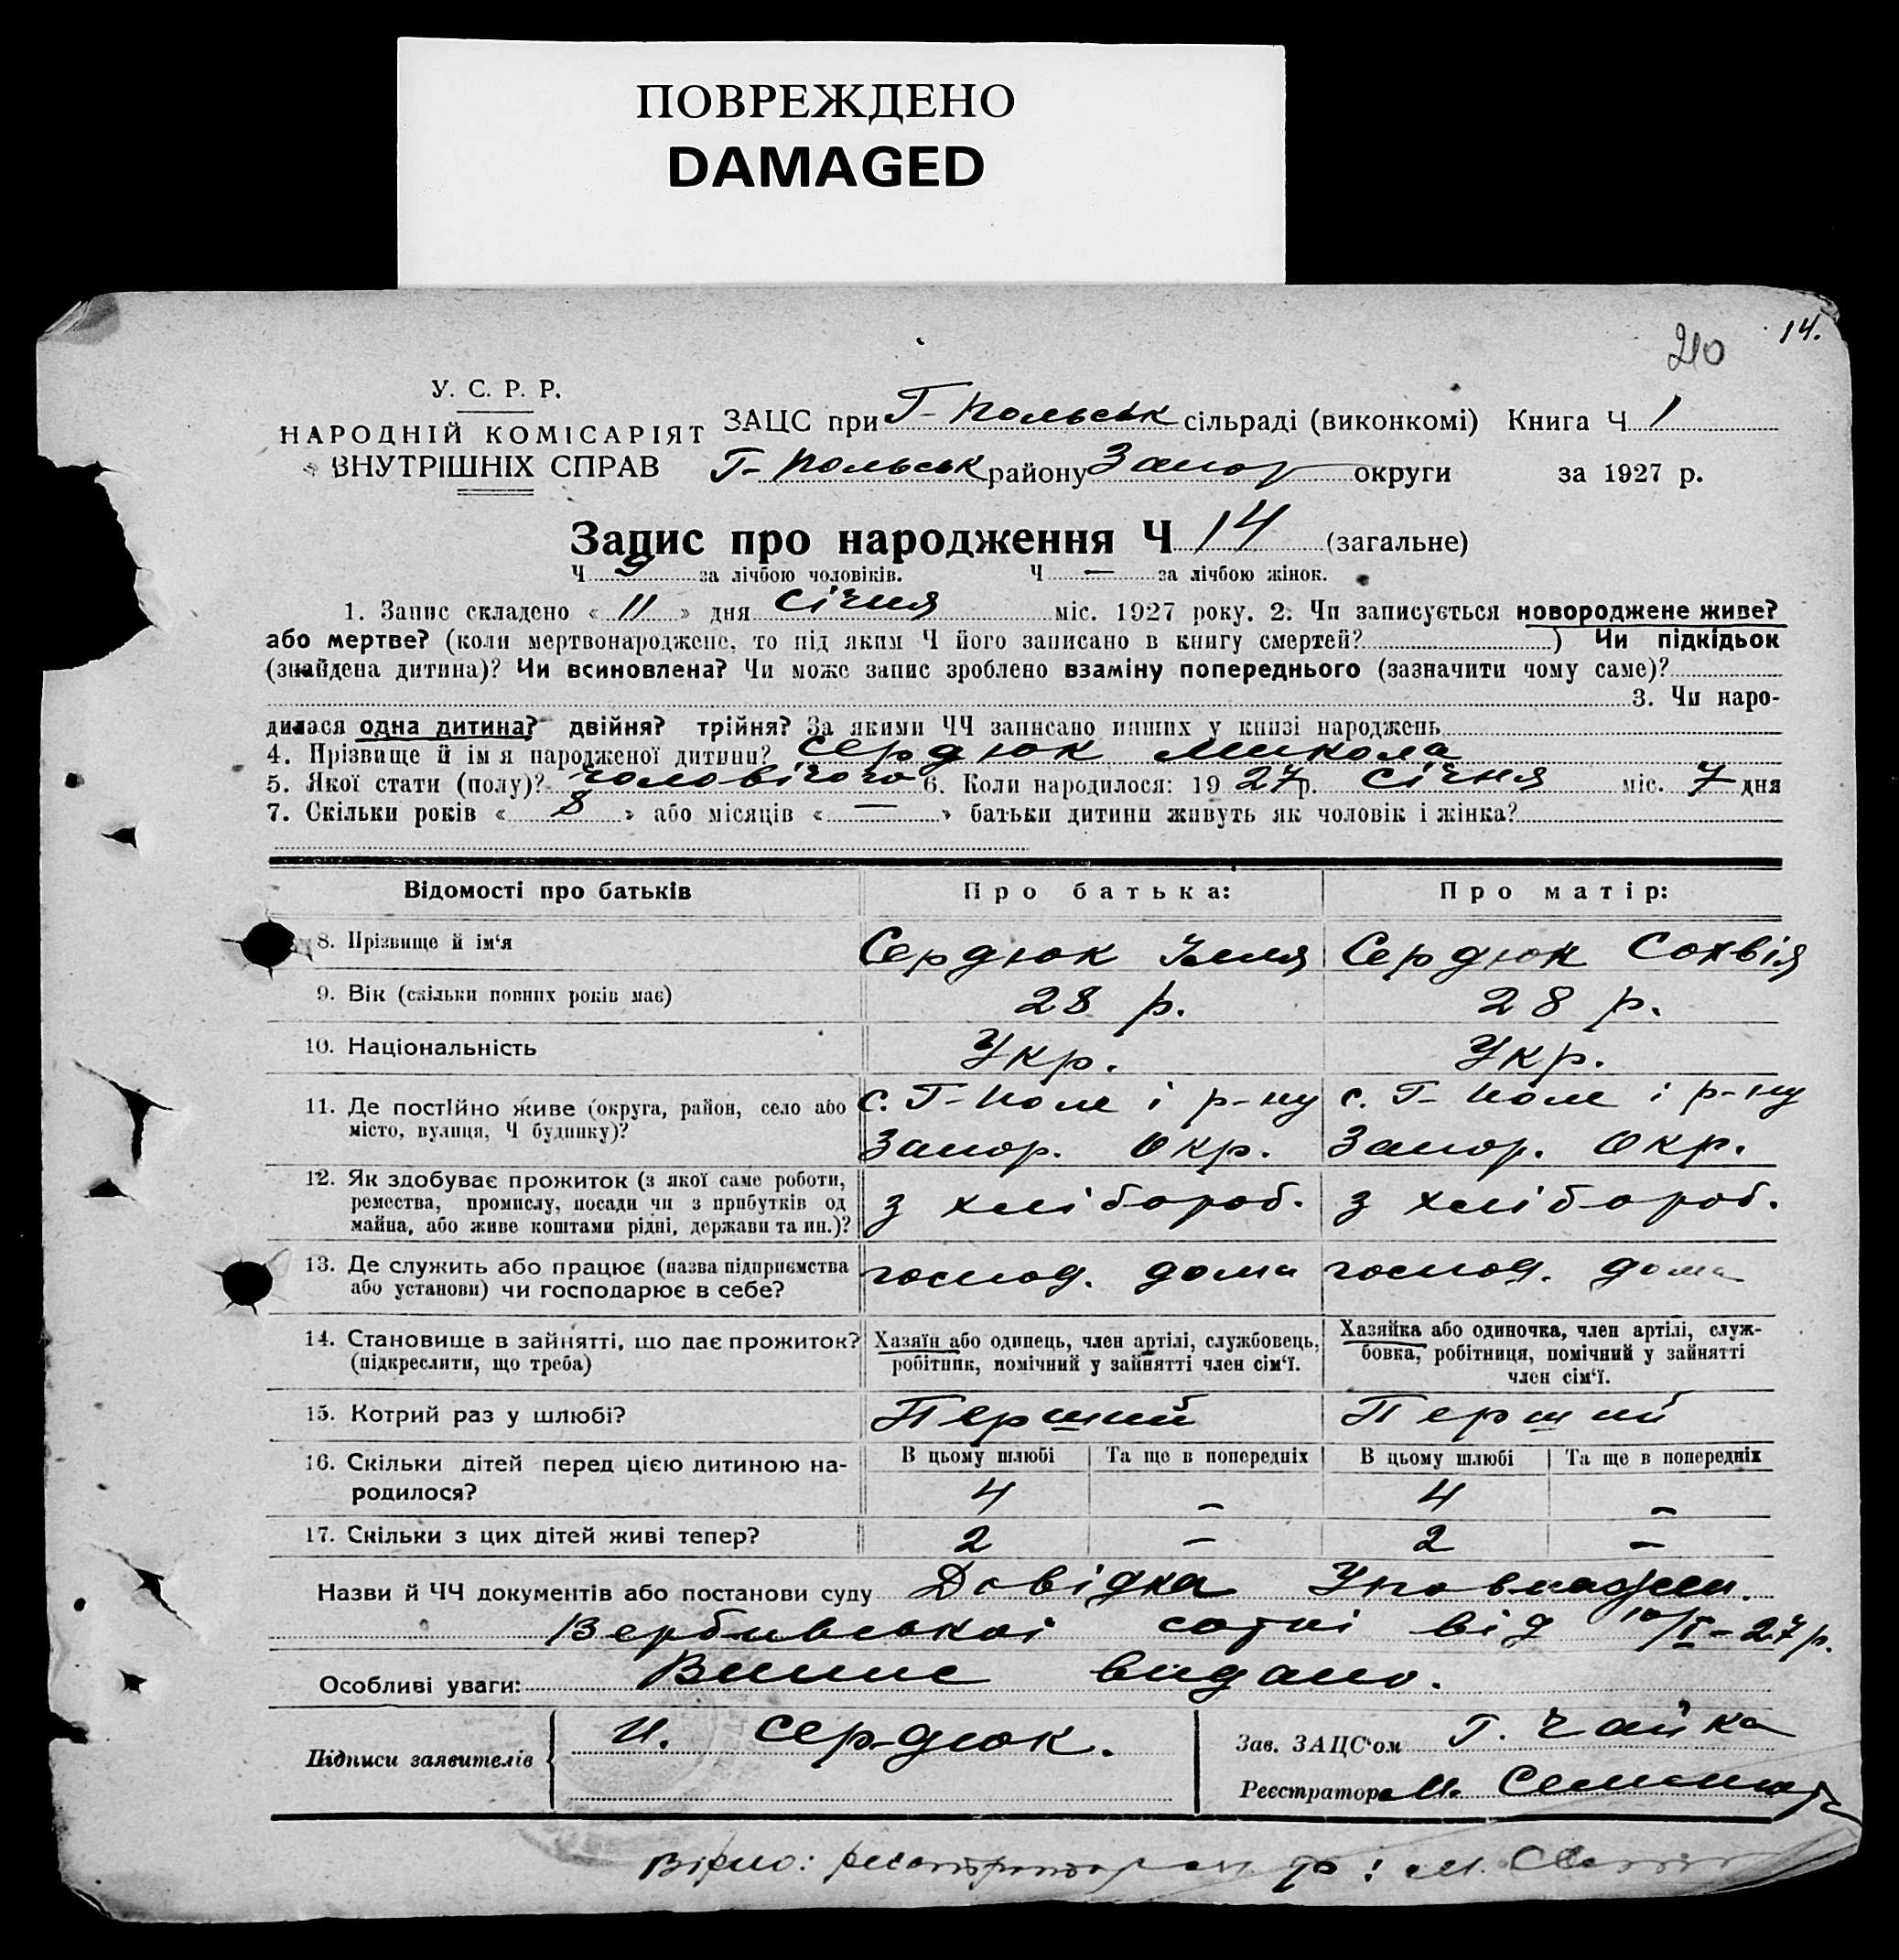 ПОВРЕЖДЕНО
DAMAGED
14.
210
У. С. Р. Р.
НАРОДНІЙ КОМІСАРІЯТ
ВНУТРІШНІХ СПРАВ
ЗАЦС при Г-Польськ сільраді (виконкомі) Книга Ч 1
Г-Польськ району Запор округи за 1927 р.
Запис про народження Ч 14 (загальне)
Ч 9 за лічбою чоловіків. Ч — за лічбою жінок.
1. Запис складено « 11 » дня Січня міс. 1927 року. 2. Чи записується новороджене живе?
або мертве? (коли мертвонароджене, то під яким Ч його записано в книгу смертей? ) Чи підкідьок
(знайдена дитина)? Чи всиновлена? Чи може запис зроблено взаміну попереднього (зазначити чому саме)?
3. Чи наро-
дилася одна дитина? двійня? трійня? За якими ЧЧ записано инших у книзі народжень
4. Прізвище й ім я народженої дитини? Сердюк Микола
5. Якої стати (полу)? чоловічого 6. Коли народилося: 19 27 р. Січня міс. 7 дня
7. Скільки років « 8 » або місяців « — » батьки дитини живуть як чоловік і жінка?
Відомості про батьків Про батька: Про матір:
8. Прізвище й ім‘я Сердюк Ілля Сердюк Сохвія
9. Вік (скільки повних років має) 28 р. 28 р.
10. Національність Укр. Укр.
11. Де постійно живе (округа, район, село або с. Г-Поле і р-ну с. Г-Поле і р-ну
місто, вулиця, Ч будинку)? Запор. Окр. Запор. Окр.
12. Як здобуває прожиток (з якої саме роботи,
ремества, промислу, посади чи з прибутків од з хлібороб. з хлібороб.
майна, або живе коштами рідні, держави та ин.)?
13. Де служить або працює (назва підприємства господ. дома господ. дома
або установи) чи господарює в себе?
14. Становище в зайнятті, що дає прожиток? Хазяїн або одинець, член артілі, службовець, Хазяйка або одиночка, член артілі, служ-
(підкреслити, що треба) робітник, помічний у зайнятті член сім‘ї. бовка, робітниця, помічний у зайнятті
член сім‘ї.
15. Котрий раз у шлюбі? Перший Перший
16. Скільки дітей перед цією дитиною на- В цьому шлюбі Та ще в попередніх В цьому шлюбі Та ще в попередніх
родилося? 4 — 4 —
17. Скільки з цих дітей живі тепер? 2 — 2 —
Назви й ЧЧ документів або постанови суду Довідка Уповнажен.
Вербивської сотні від 10/I-27р.
Особливі уваги: Випис видано.
Підписи заявителів И. Сердюк. Зав. ЗАЦС‘ом Г. Чайка
Реєстратор М.
Вірно: М.